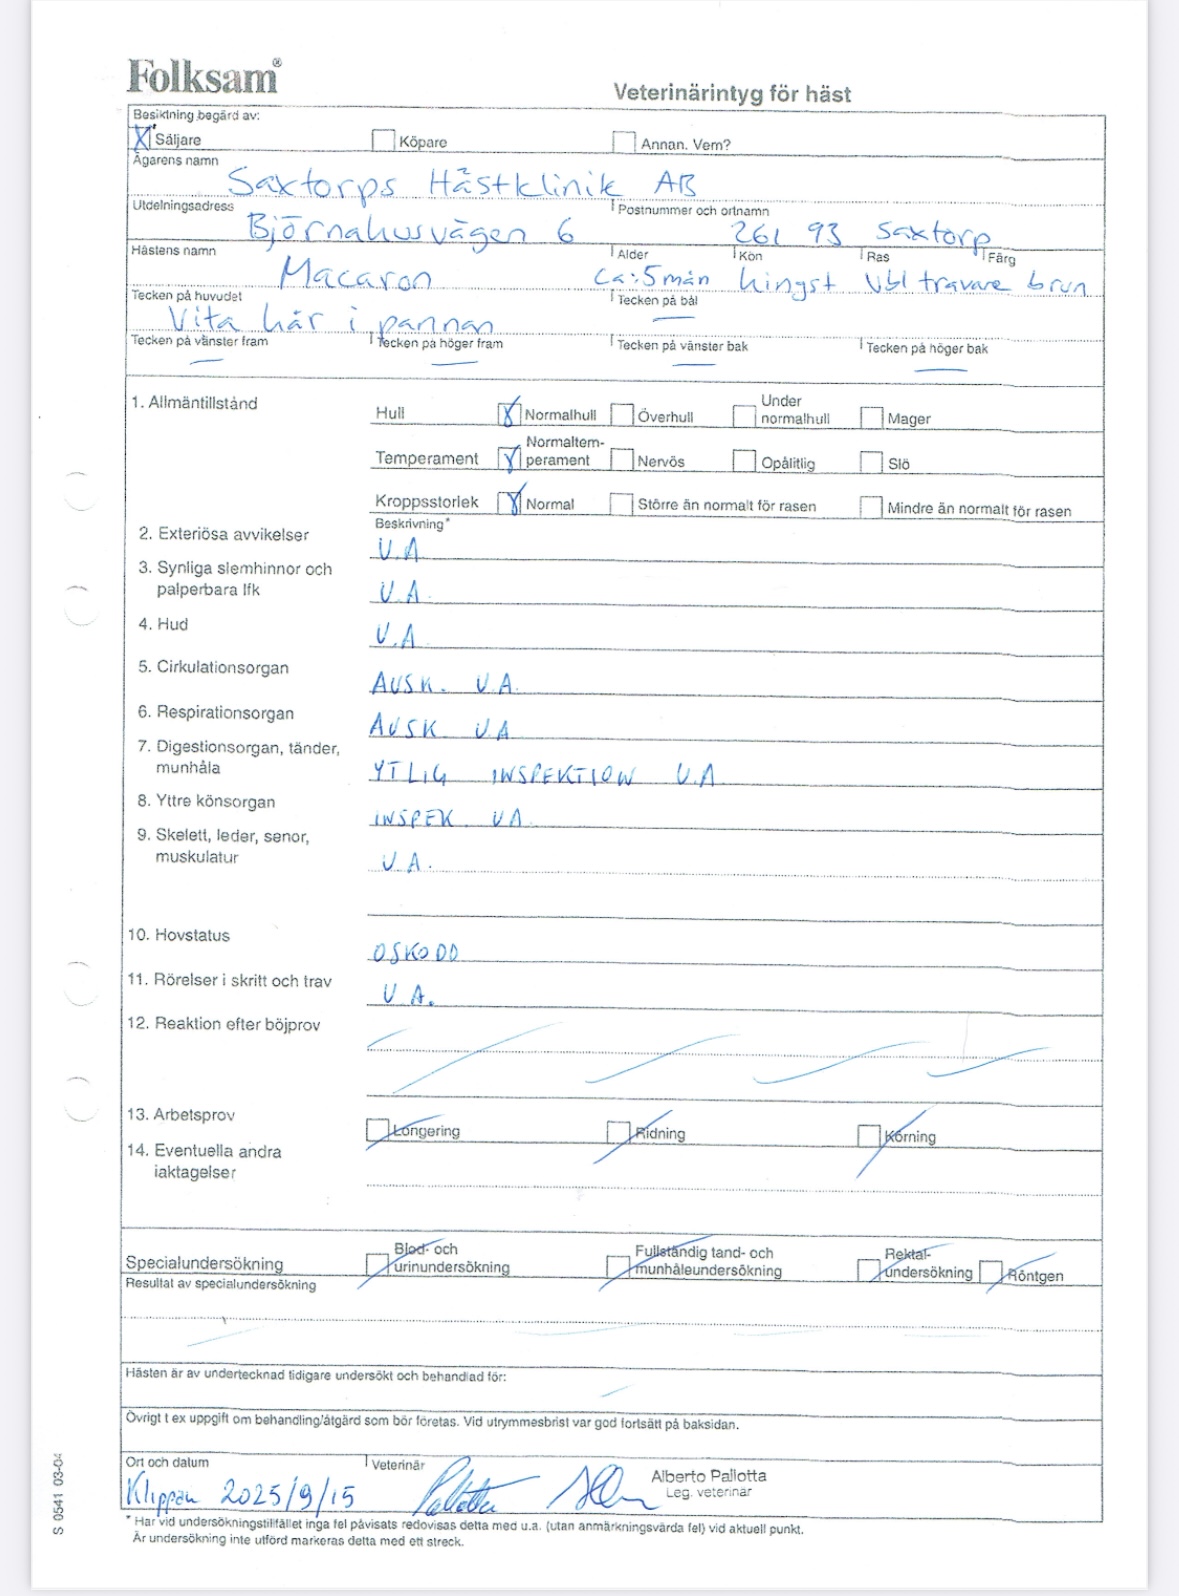 Folksam®
Veterinärintyg för häst
Besiktning begärd av:
X Säljare Köpare Annan. Vem?
Ägarens namn
Saxtorps Hästklinik AB
Utdelningsadress Postnummer och ortnamn
Björnahusvägen 6 261 93 Saxtorp
Hästens namn Ålder Kön Ras Färg
Macaron ca: 5 mån hingst vbl travare brun
Tecken på huvudet Tecken på bål
Vita hår i pannan —
Tecken på vänster fram Tecken på höger fram Tecken på vänster bak Tecken på höger bak
— — — —
1. Allmäntillstånd Hull X Normalhull Överhull Under normalhull Mager
Temperament X Normaltem-perament Nervös Opålitlig Slö
Kroppsstorlek X Normal Större än normalt för rasen Mindre än normalt för rasen
Beskrivning*
2. Exteriösa avvikelser U.A
3. Synliga slemhinnor och
palperbara lfk U.A.
4. Hud U.A
5. Cirkulationsorgan AUSK. U.A.
6. Respirationsorgan AUSK U.A
7. Digestionsorgan, tänder,
munhåla YTLIG INSPEKTION U.A
8. Yttre könsorgan INSPEK. UA.
9. Skelett, leder, senor,
muskulatur U.A.
10. Hovstatus OSKODD
11. Rörelser i skritt och trav U A.
12. Reaktion efter böjprov
13. Arbetsprov Longering Ridning Körning
14. Eventuella andra
iaktagelser
Specialundersökning Blod- och urinundersökning Fullständig tand- och munhåleundersökning Rektal-undersökning Röntgen
Resultat av specialundersökning
Hästen är av undertecknad tidigare undersökt och behandlad för:
Övrigt t ex uppgift om behandling/åtgärd som bör företas. Vid utrymmesbrist var god fortsätt på baksidan.
Ort och datum Veterinär
Klippan 2025/9/15 Alberto Pallotta
Leg. veterinär
* Har vid undersökningstillfället inga fel påvisats redovisas detta med u.a. (utan anmärkningsvärda fel) vid aktuell punkt.
Är undersökning inte utförd markeras detta med ett streck.
S 0541 03-04